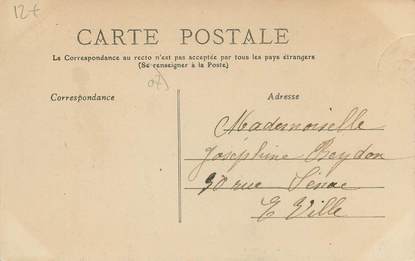 12+
CARTE POSTALE
La Correspondance au recto n'est pas acceptée par tous les pays étrangers
(Se renseigner à la Poste)
Correspondance
Adresse
Mademoiselle
Joséphine Beydon
30 rue Sénac
E Ville